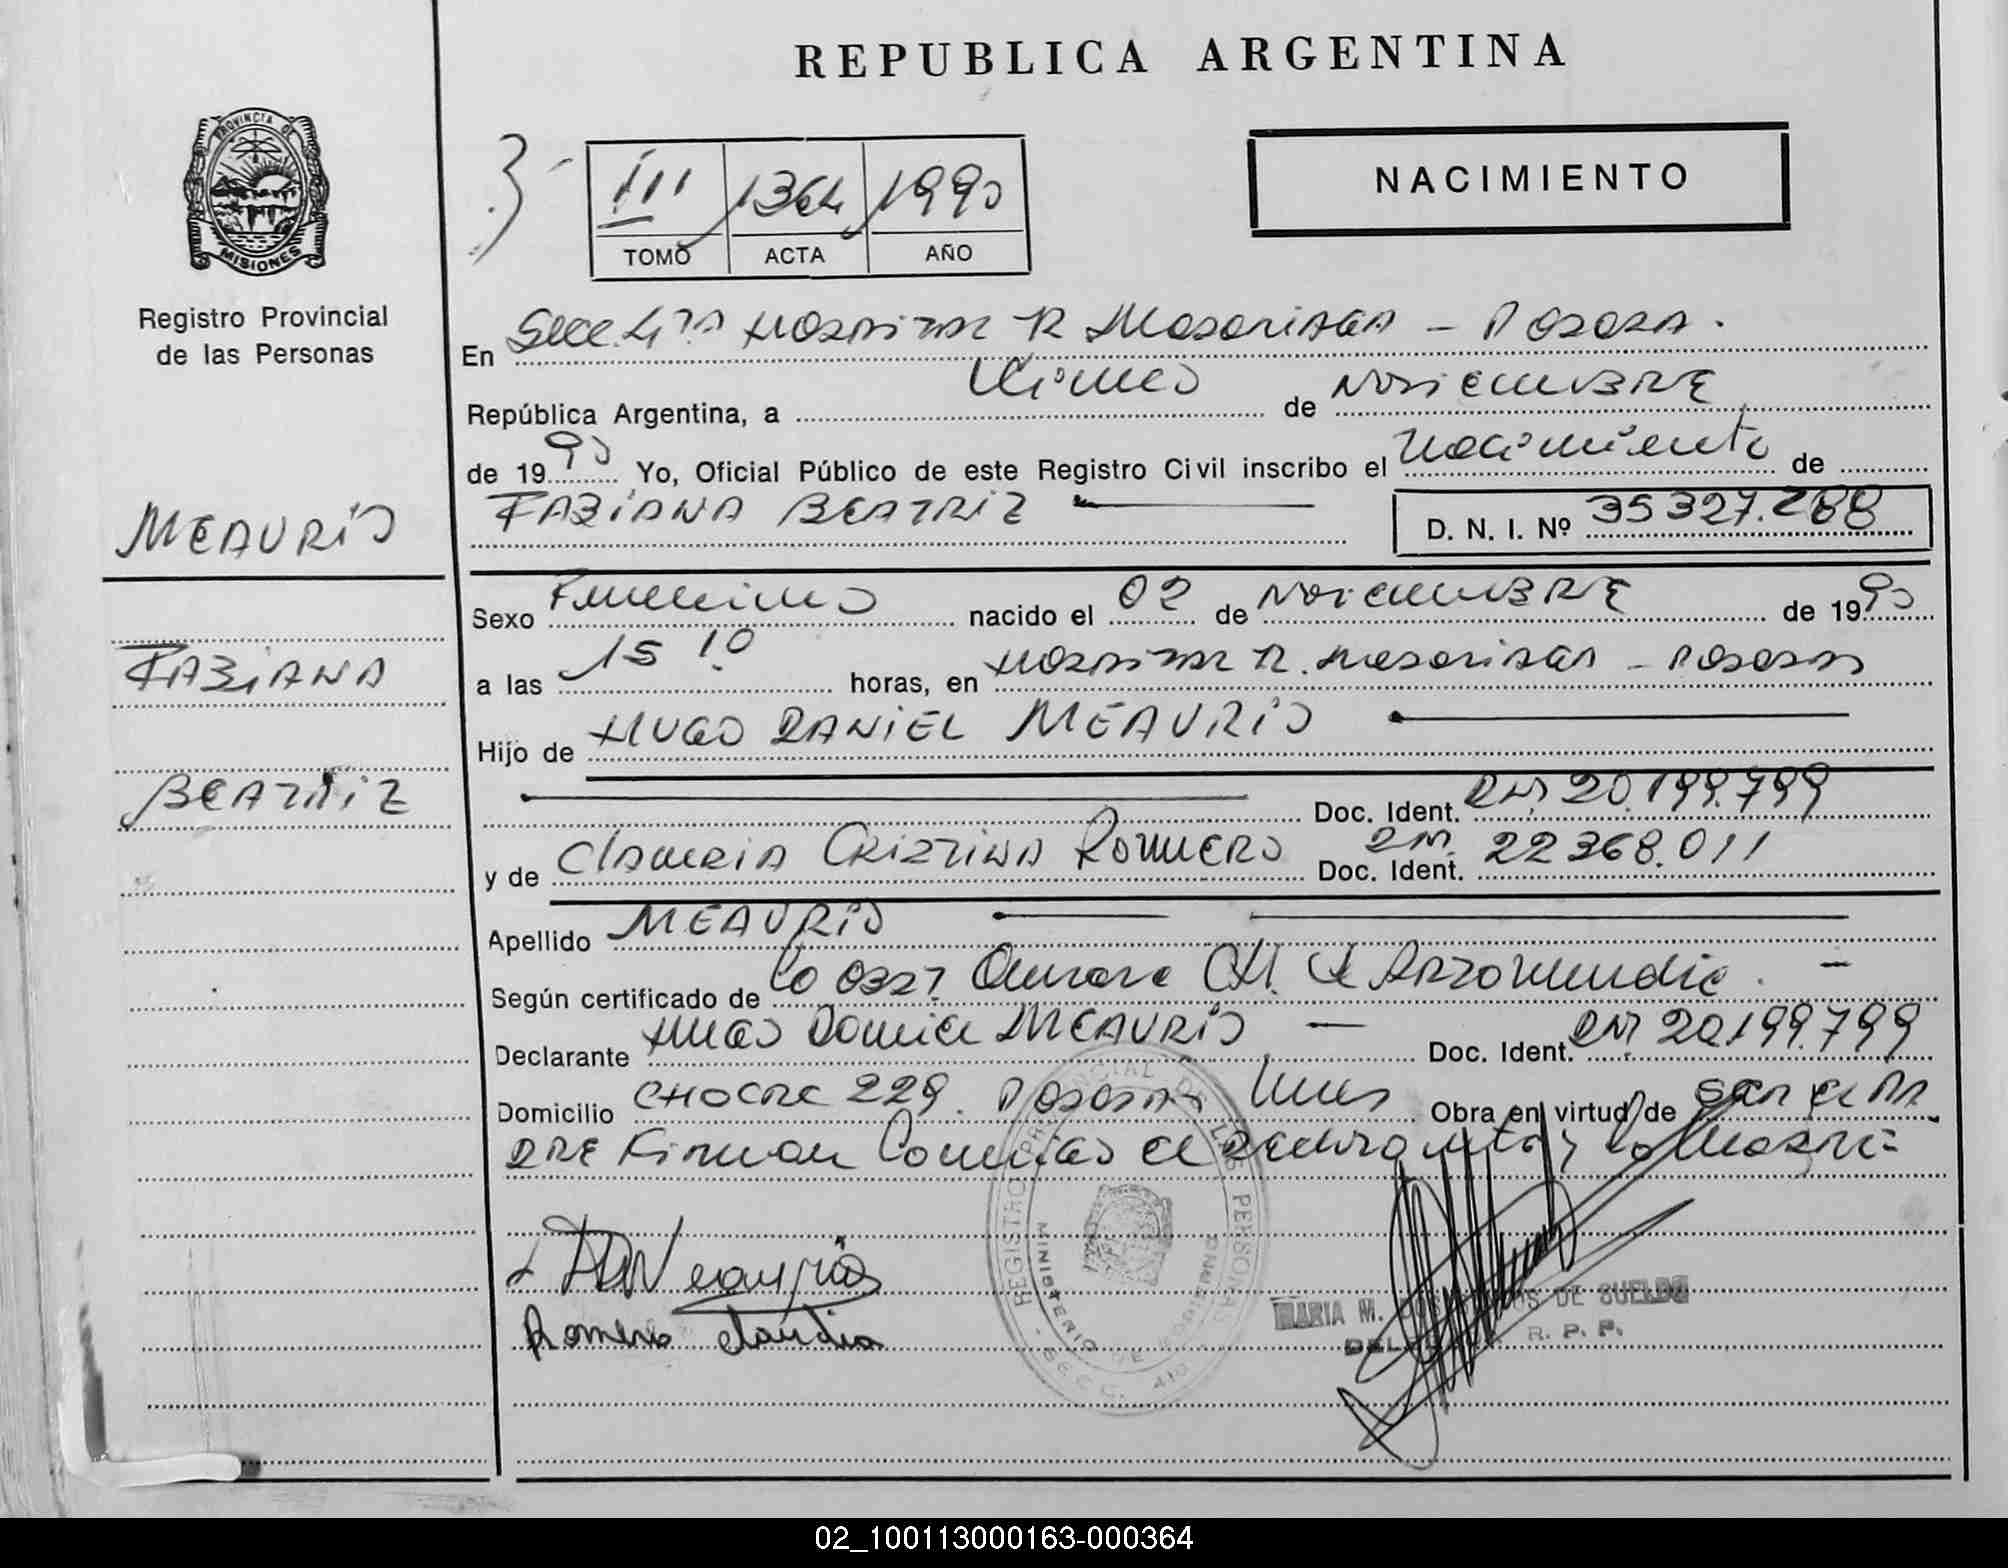 REPUBLICA ARGENTINA
PROVINCIA DE
MISIONES
Registro Provincial
de las Personas
3
III 1364 1990
TOMO ACTA AÑO
NACIMIENTO
En Secc. 4ta Hospital R Madariaga - Posadas.
República Argentina, a cinco de Noviembre
de 1990 Yo, Oficial Público de este Registro Civil inscribo el Nacimiento de
FABIANA BEATRIZ D. N. I. Nº 35327.288
MEAURIO
FABIANA
BEATRIZ
Sexo Femenino nacido el 02 de Noviembre de 1990
a las 15 10 horas, en Hospital R. Madariaga - Posadas
Hijo de HUGO DANIEL MEAURIO
Doc. Ident. DNI 20.199.799
y de Claudia Cristina Romero Doc. Ident. DNI. 22368.011
Apellido MEAURIO
Según certificado de la Obst.
Declarante Hugo Daniel MEAURIO Doc. Ident. DNI 20.199.799
Domicilio 229. Posadas Mnes Obra en virtud de ser el Pa
dre Firman Conmigo el Declarante y la Madre
Romero Claudia
REGISTRO PROVINCIAL DE LAS PERSONAS
MINISTERIO DE GOBIERNO
SECC. 4ta
MARIA M. DE SUELDO
R. P. P.
02_100113000163-000364